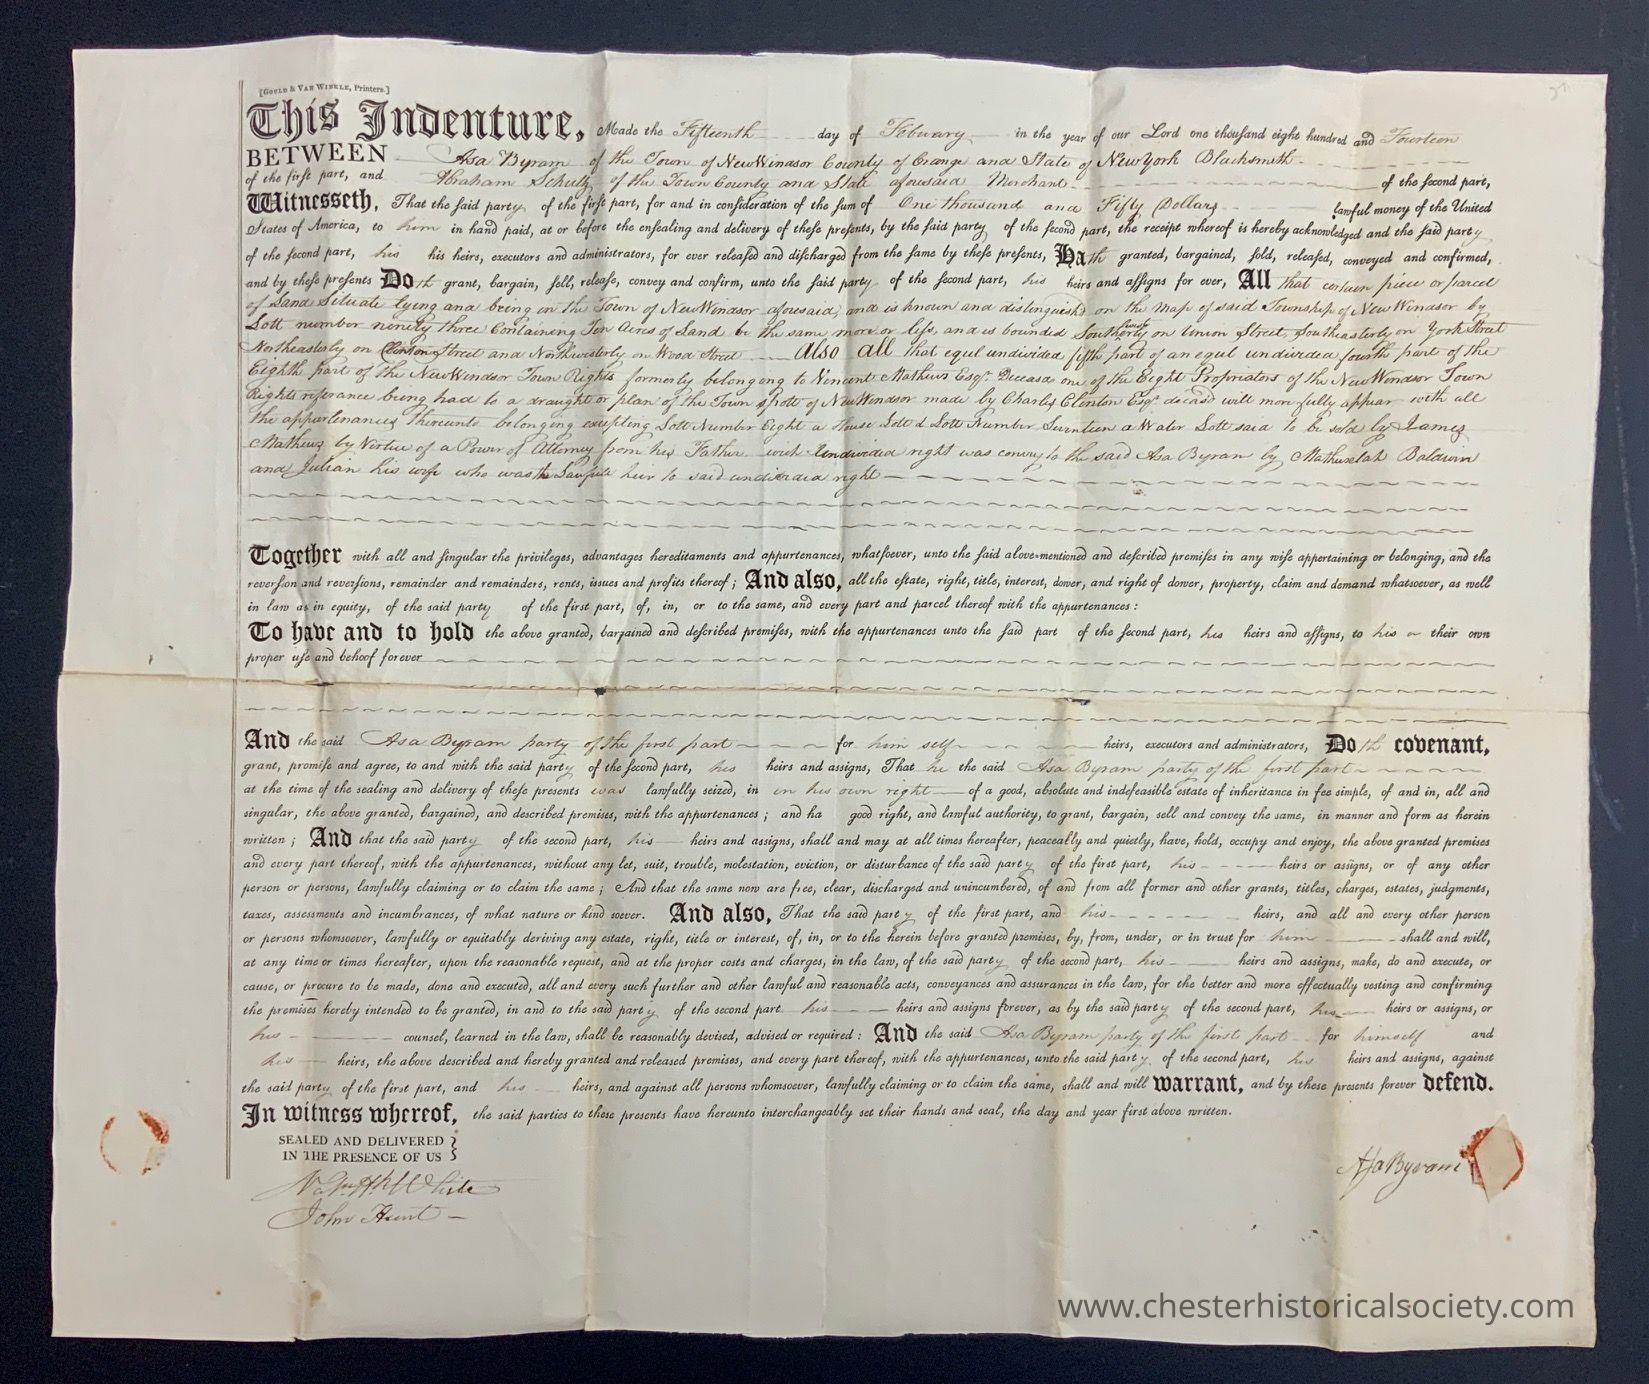 [Gould & Van Winkle, Printers.]
This Indenture, Made the Fifteenth day of Febuary in the year of our Lord one thousand eight hundred and Fourteen
BETWEEN Asa Byram of the Town of New Windsor County of Orange and State of New York Blacksmith
of the first part, and Abraham Schultz of the Town County and State aforesaid Merchant of the second part,
Witnesseth, That the said party of the first part, for and in consideration of the sum of One thousand and Fifty Dollars lawful money of the United
States of America, to him in hand paid, at or before the ensealing and delivery of these presents, by the said party of the second part, the receipt whereof is hereby acknowledged and the said party
of the second part, his his heirs, executors and administrators, for ever released and discharged from the same by these presents, Hath granted, bargained, sold, released, conveyed and confirmed,
and by these presents Doth grant, bargain, sell, release, convey and confirm, unto the said party of the second part, his heirs and assigns for ever, All that certain piece or parcel
of Land Situate lying and being in the Town of New Windsor aforesaid and is known and distinguishd on the Map of said Township of New Windsor by
Lott number ninety three Containing Ten Acres of Land be the same more or less, and is bounded on Union Street, Southeasterly on York Street
Northeasterly on Clinton Street and Northwesterly on Wood Street Also all that equl undivided fifth part of an equl undivided fourth part of the
Eighth part of the New Windsor Town Rights formerly belongeng to Vincent Mathews Esqr. Deceasd one of the Eight Propriators of the New Windsor Town
Rights referance being had to a draught or plan of the Town spott of New Windsor made by Charles Clinton Esqr. decasd will more fully appear with all
the appurtenances Thereunto belonging excepting Lott Number Eight a House Lott & Lott Number Seventeen a Water Lott said to be sold by James
Mathews by Vertue of a Power of Attorney from his Father wich undivided right was convey to the said Asa Byram by Mathuselah Baldwin
and Julian his wife who was the Lawfull heir to said undivided right
Together with all and singular the privileges, advantages hereditaments and appurtenances, whatsoever, unto the said above-mentioned and described premises in any wise appertaining or belonging, and the
reversion and reversions, remainder and remainders, rents, issues and profits thereof; And also, all the estate, right, title, interest, dower, and right of dower, property, claim and demand whatsoever, as well
in law as in equity, of the said party of the first part, of, in, or to the same, and every part and parcel thereof with the appurtenances:
To have and to hold the above granted, bargained and described premises, with the appurtenances unto the said part of the second part, his heirs and assigns, to his or their own
proper use and behoof forever
And the said Asa Byram party of the first part for him self heirs, executors and administrators, Doth covenant,
grant, promise and agree, to and with the said party of the second part, his heirs and assigns, That he the said Asa Byram party of the first part
at the time of the sealing and delivery of these presents was lawfully seized, in in his own right of a good, absolute and indefeasible estate of inheritance in fee simple, of and in, all and
singular, the above granted, bargained, and described premises, with the appurtenances; and ha good right, and lawful authority, to grant, bargain, sell and convey the same, in manner and form as herein
written; And that the said party of the second part, his heirs and assigns, shall and may at all times hereafter, peaceably and quietly, have, hold, occupy and enjoy, the above granted premises
and every part thereof, with the appurtenances, without any let, suit, trouble, molestation, eviction, or disturbance of the said party of the first part, his heirs or assigns, or of any other
person or persons, lawfully claiming or to claim the same; And that the same now are free, clear, discharged and unincumbered, of and from all former and other grants, titles, charges, estates, judgments,
taxes, assessments and incumbrances, of what nature or kind soever. And also, That the said party of the first part, and his heirs, and all and every other person
or persons whomsoever, lawfully or equitably deriving any estate, right, title or interest, of, in, or to the herein before granted premises, by, from, under, or in trust for him shall and will,
at any time or times hereafter, upon the reasonable request, and at the proper costs and charges, in the law, of the said party of the second part, his heirs and assigns, make, do and execute, or
cause, or procure to be made, done and executed, all and every such further and other lawful and reasonable acts, conveyances and assurances in the law, for the better and more effectually vesting and confirming
the premises hereby intended to be granted, in and to the said party of the second part his heirs and assigns forever, as by the said party of the second part, his heirs or assigns, or
his counsel, learned in the law, shall be reasonably devised, advised or required: And the said Asa Byram party of the first part for himself and
his heirs, the above described and hereby granted and released premises, and every part thereof, with the appurtenances, unto the said party of the second part, his heirs and assigns, against
the said party of the first part, and his heirs, and against all persons whomsoever, lawfully claiming or to claim the same, shall and will warrant, and by these presents forever defend.
In witness whereof, the said parties to these presents have hereunto interchangeably set their hands and seal, the day and year first above written.
SEALED AND DELIVERED
IN THE PRESENCE OF US
White
John Hunt
Asa Byram
www.chesterhistoricalsociety.com